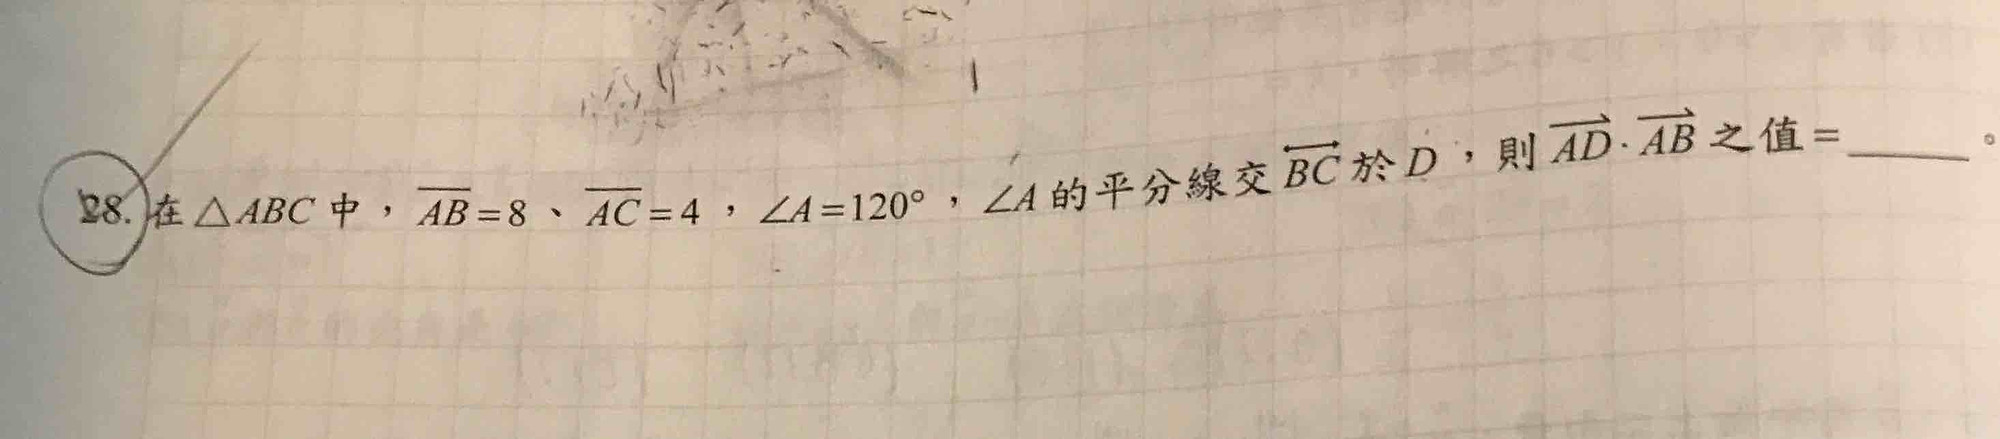 28. 在△ABC中，$\overline{AB}$=8、$\overline{AC}$=4，∠A=120°，∠A的平分線交$\overleftrightarrow{BC}$於D，則$\overrightarrow{AD}$·$\overrightarrow{AB}$之值=______。